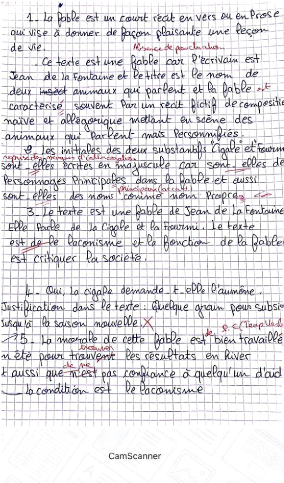 1. La fable est un court récit en vers ou en Prose
qui vise à donner de façon plaisante une leçon
de vie.
Absence de ponctuation.
Ce texte est une fable car l'écrivain est
Jean de La Fontaine et le titre est le nom de
deux insect animaux qui parlent et la fable est
caractérisé souvent Par un récit fictif de compositi
naïve et allégorique mettant en scène des
animaux qui Parlent mais Personnifiés.
2. Les initiales des deux substantifs "Cigale et Fourmi
sont elles écrites en majuscule car sont elles de
Personnages Principales dans la fable et aussi
sont elles des noms comme nom Propre
3. Le texte est une fable de Jean de La Fontaine
Elle Parle de la Cigale et la Fourmi. Le texte
est de le laconisme et la fonction de la fable
est critiquer la société.
4. Oui, la cigale demande-t-elle l'aumône.
Justification dans le texte: Quelque grain pour subsis
Jusqu'à la saison nouvelle X
5. La morale de cette fable est de bien travaillé
n été pour trouvent les résultats en hiver
t aussi que n'est pas confiance à quelqu'un d'aid
la condition est le laconisme
CamScanner